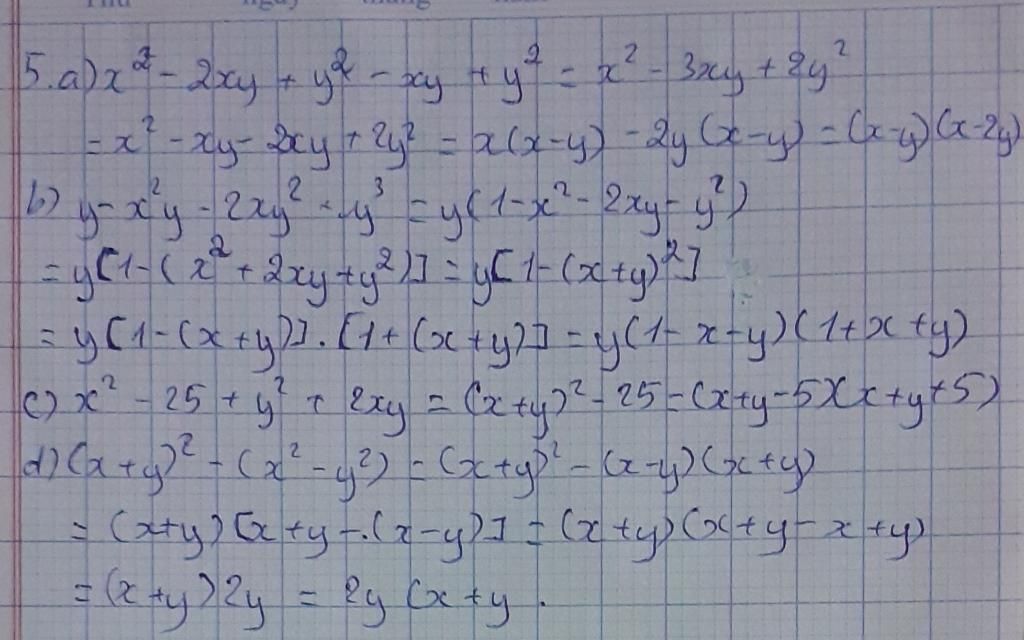 5.a) x² - 2xy + y² - xy + y² = x² - 3xy + 2y²
= x² - xy - 2xy + 2y² = x(x-y) - 2y(x-y) = (x-y)(x-2y)
b) y - x²y - 2xy² - y³ = y(1 - x² - 2xy - y²)
= y[1 - (x² + 2xy + y²)] = y[1 - (x+y)²]
= y[1 - (x+y)].[1 + (x+y)] = y(1 - x - y)(1 + x + y)
c) x² - 25 + y² + 2xy = (x+y)² - 25 = (x+y-5)(x+y+5)
d) (x+y)² - (x² - y²) = (x+y)² - (x-y)(x+y)
= (x+y)[x+y - (x-y)] = (x+y)(x+y - x + y)
= (x+y)2y = 2y(x+y.